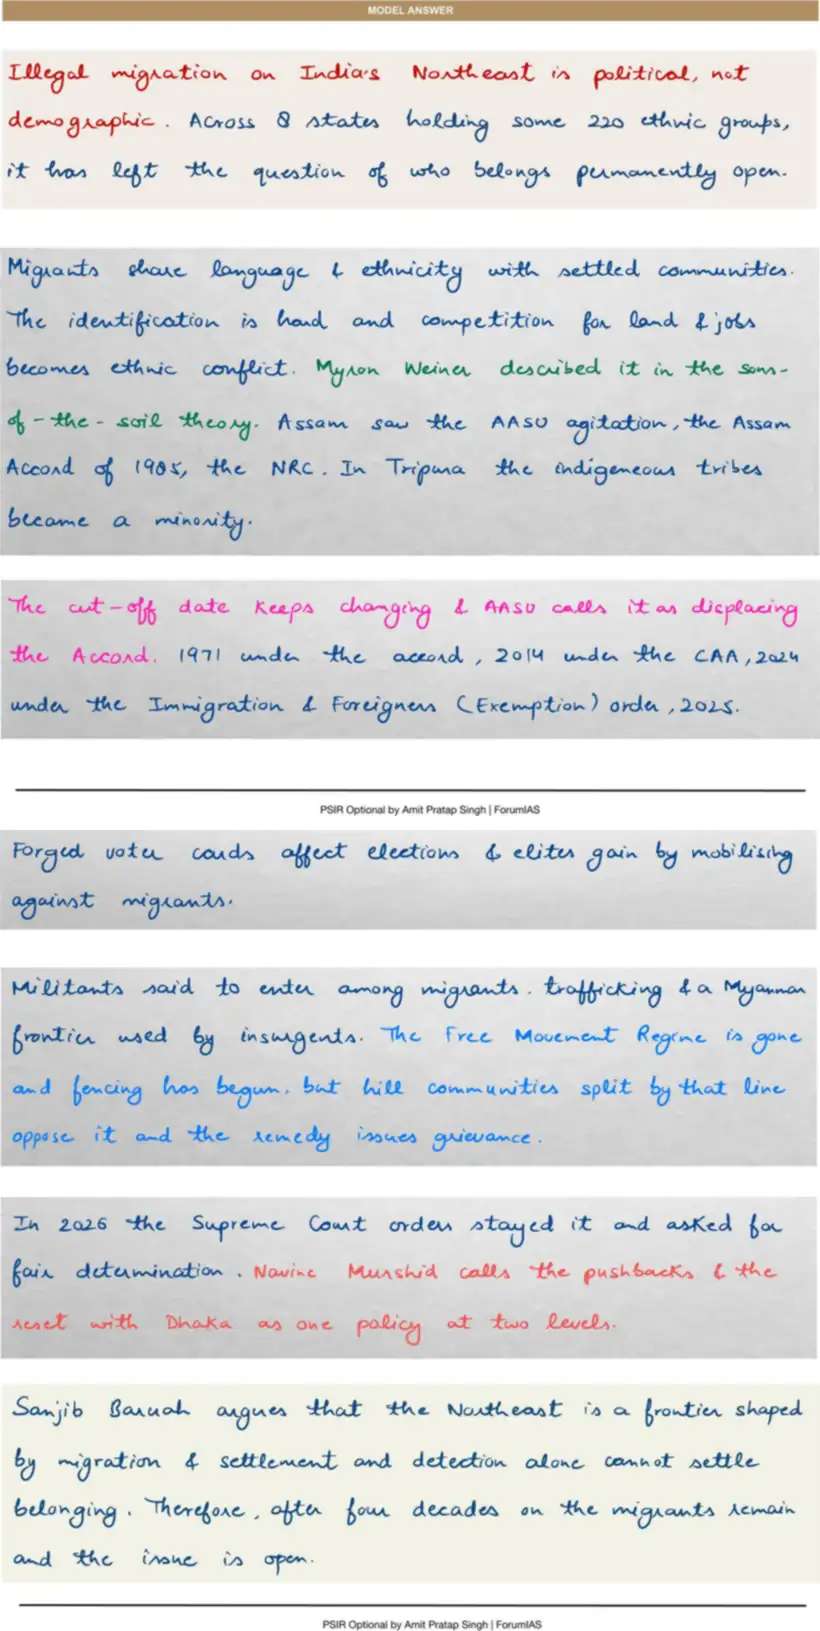 MODEL ANSWER
Illegal migration on India's Northeast is political, not
demographic. Across 8 states holding some 220 ethnic groups,
it has left the question of who belongs permanently open.
Migrants share language & ethnicity with settled communities.
The identification is hard and competition for land & jobs
becomes ethnic conflict. Myron Weiner described it in the sons-
of-the-soil theory. Assam saw the AASU agitation, the Assam
Accord of 1985, the NRC. In Tripura the indigeneous tribes
became a minority.
The cut-off date keeps changing & AASU calls it as displacing
the Accord. 1971 under the accord, 2014 under the CAA, 2024
under the Immigration & Foreigners (Exemption) order, 2025.
PSIR Optional by Amit Pratap Singh | ForumIAS
Forged voter cards affect elections & elites gain by mobilising
against migrants.
Militants said to enter among migrants. trafficking & a Myanmar
frontier used by insurgents. The Free Movement Regime is gone
and fencing has begun. but hill communities split by that line
oppose it and the remedy issues grievance.
In 2026 the Supreme Court orders stayed it and asked for
fair determination. Navine Murshid calls the pushbacks & the
reset with Dhaka as one policy at two levels.
Sanjib Baruah argues that the Northeast is a frontier shaped
by migration & settlement and detection alone cannot settle
belonging. Therefore, after four decades on the migrants remain
and the issue is open.
PSIR Optional by Amit Pratap Singh | ForumIAS